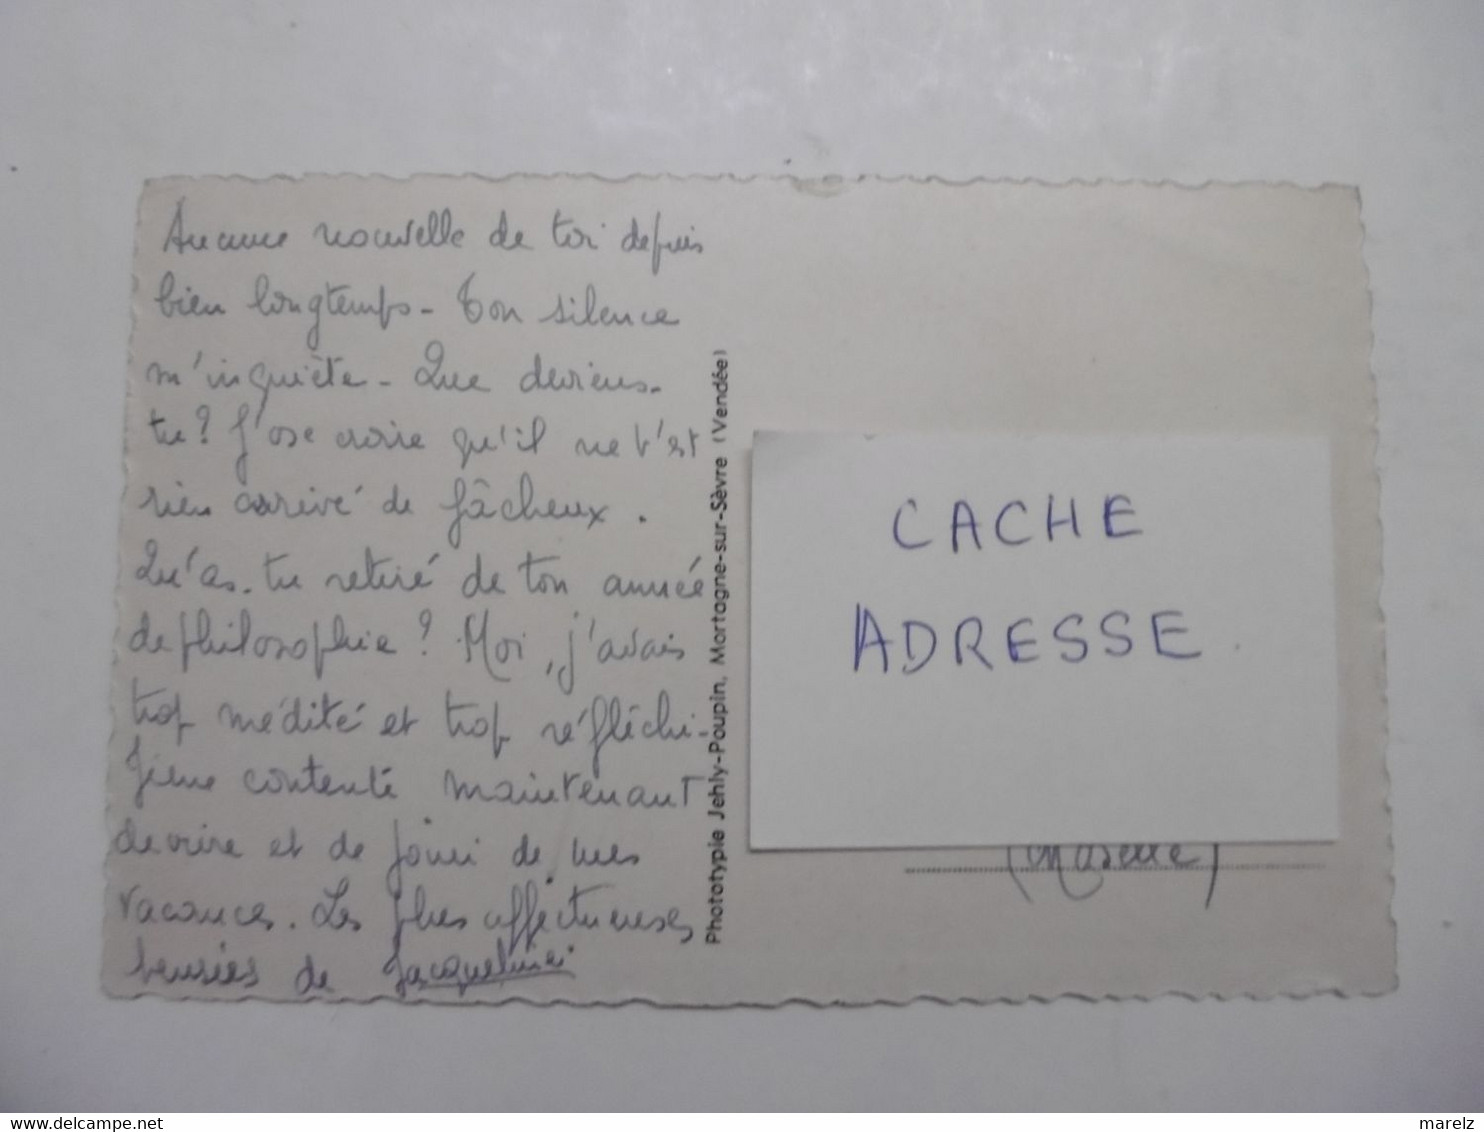 Aucune nouvelle de toi depuis
bien longtemps - Ton silence
m'inquiète - Que deviens-
tu? J'ose croire qu'il ne t'est
rien arrivé de fâcheux.
Qu'as-tu retiré de ton année
de philosophie? Moi, j'avais
trop médité et trop réfléchi -
Je me contente maintenant
de vivre et de jouir de mes
vacances. Les plus affectueuses
pensées de Jacqueline
Phototypie Jehly-Poupin, Mortagne-sur-Sèvre (Vendée)
CACHE
ADRESSE
(Moselle)
delcampe.net
marelz